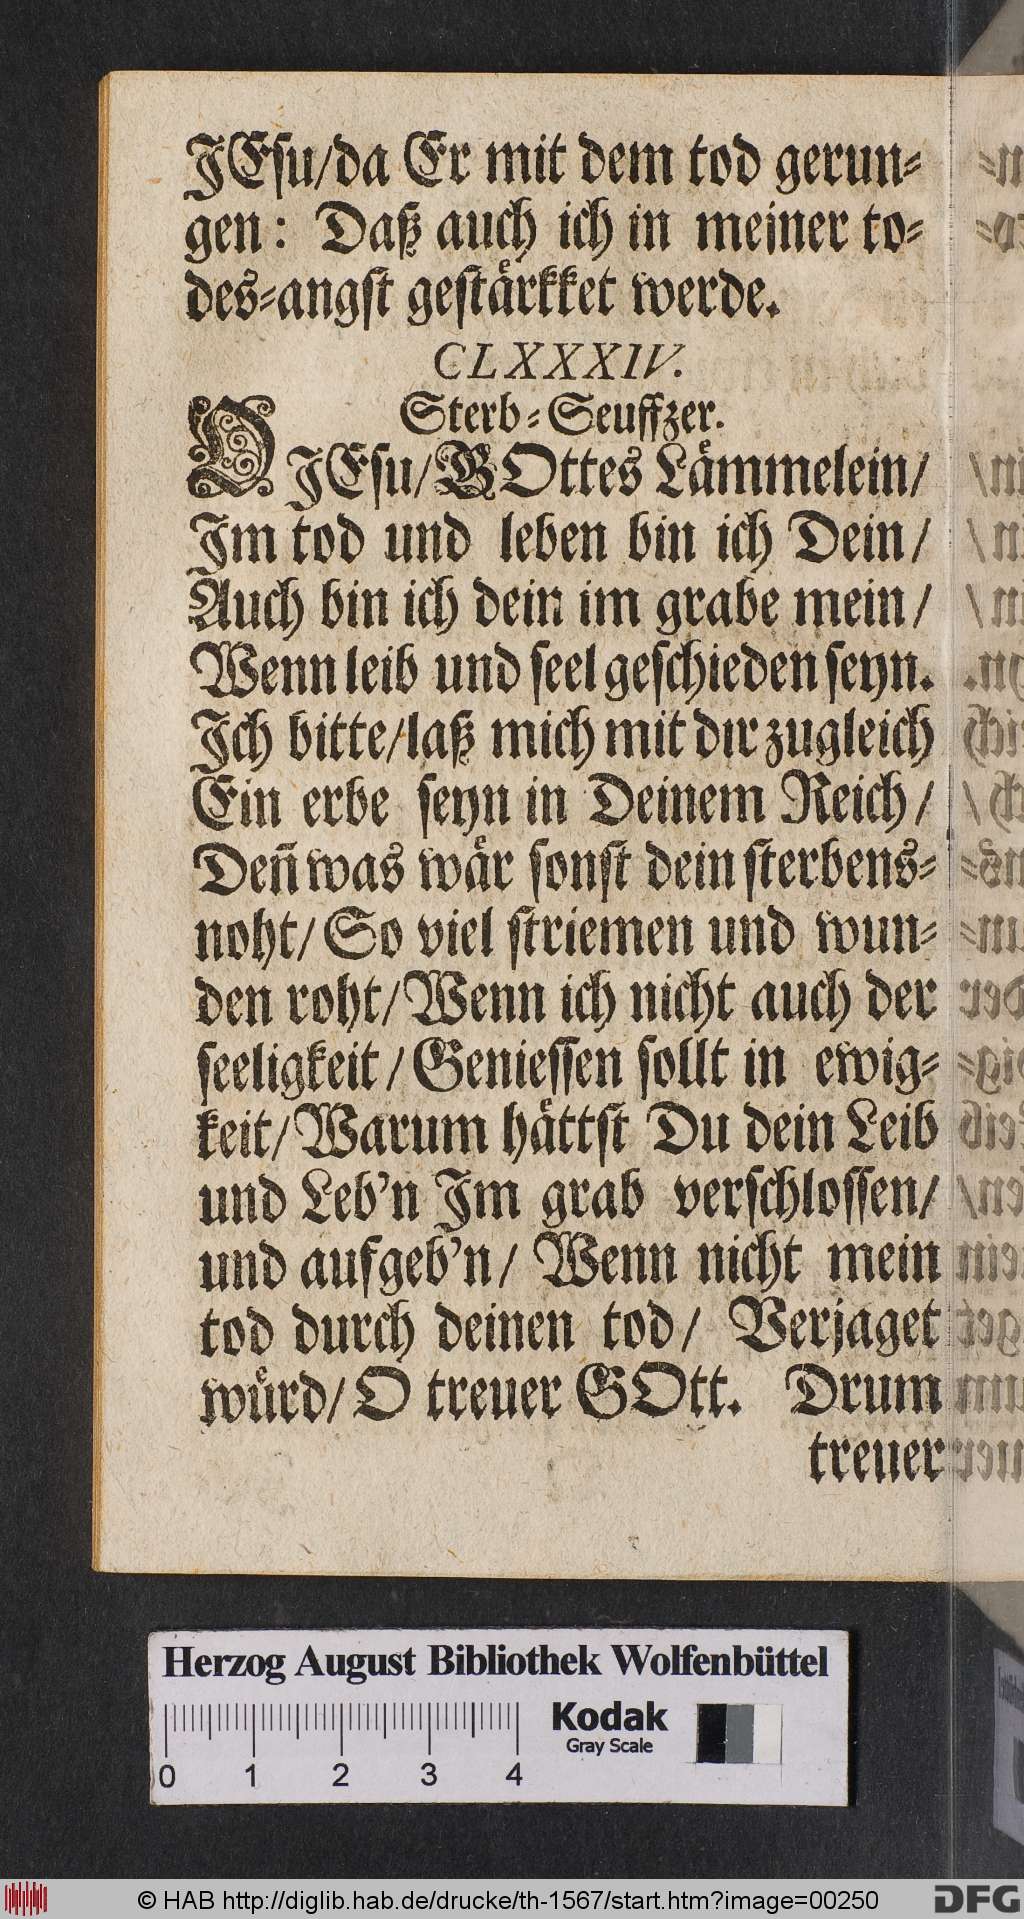 JEsu/da Er mit dem tod gerun-
gen: Daß auch ich in meiner to-
des-angst gestärkket werde.
CLXXXIV.
Sterb-Seuffzer.
O JEsu/GOttes Lämmelein/
Im tod und leben bin ich Dein/
Auch bin ich dein im grabe mein/
Wenn leib und seel geschieden seyn.
Ich bitte/laß mich mit dir zugleich
Ein erbe seyn in Deinem Reich/
Deñ was wär sonst dein sterbens-
noht/So viel striemen und wun-
den roht/Wenn ich nicht auch der
seeligkeit/Geniessen sollt in ewig-
keit/Warum hättst Du dein Leib
und Leb'n Im grab verschlossen/
und aufgeb'n/ Wenn nicht mein
tod durch deinen tod/ Verjaget
würd/O treuer GOtt. Drum
treuer
Herzog August Bibliothek Wolfenbüttel
Kodak
Gray Scale
0 1 2 3 4
© HAB http://diglib.hab.de/drucke/th-1567/start.htm?image=00250
DFG